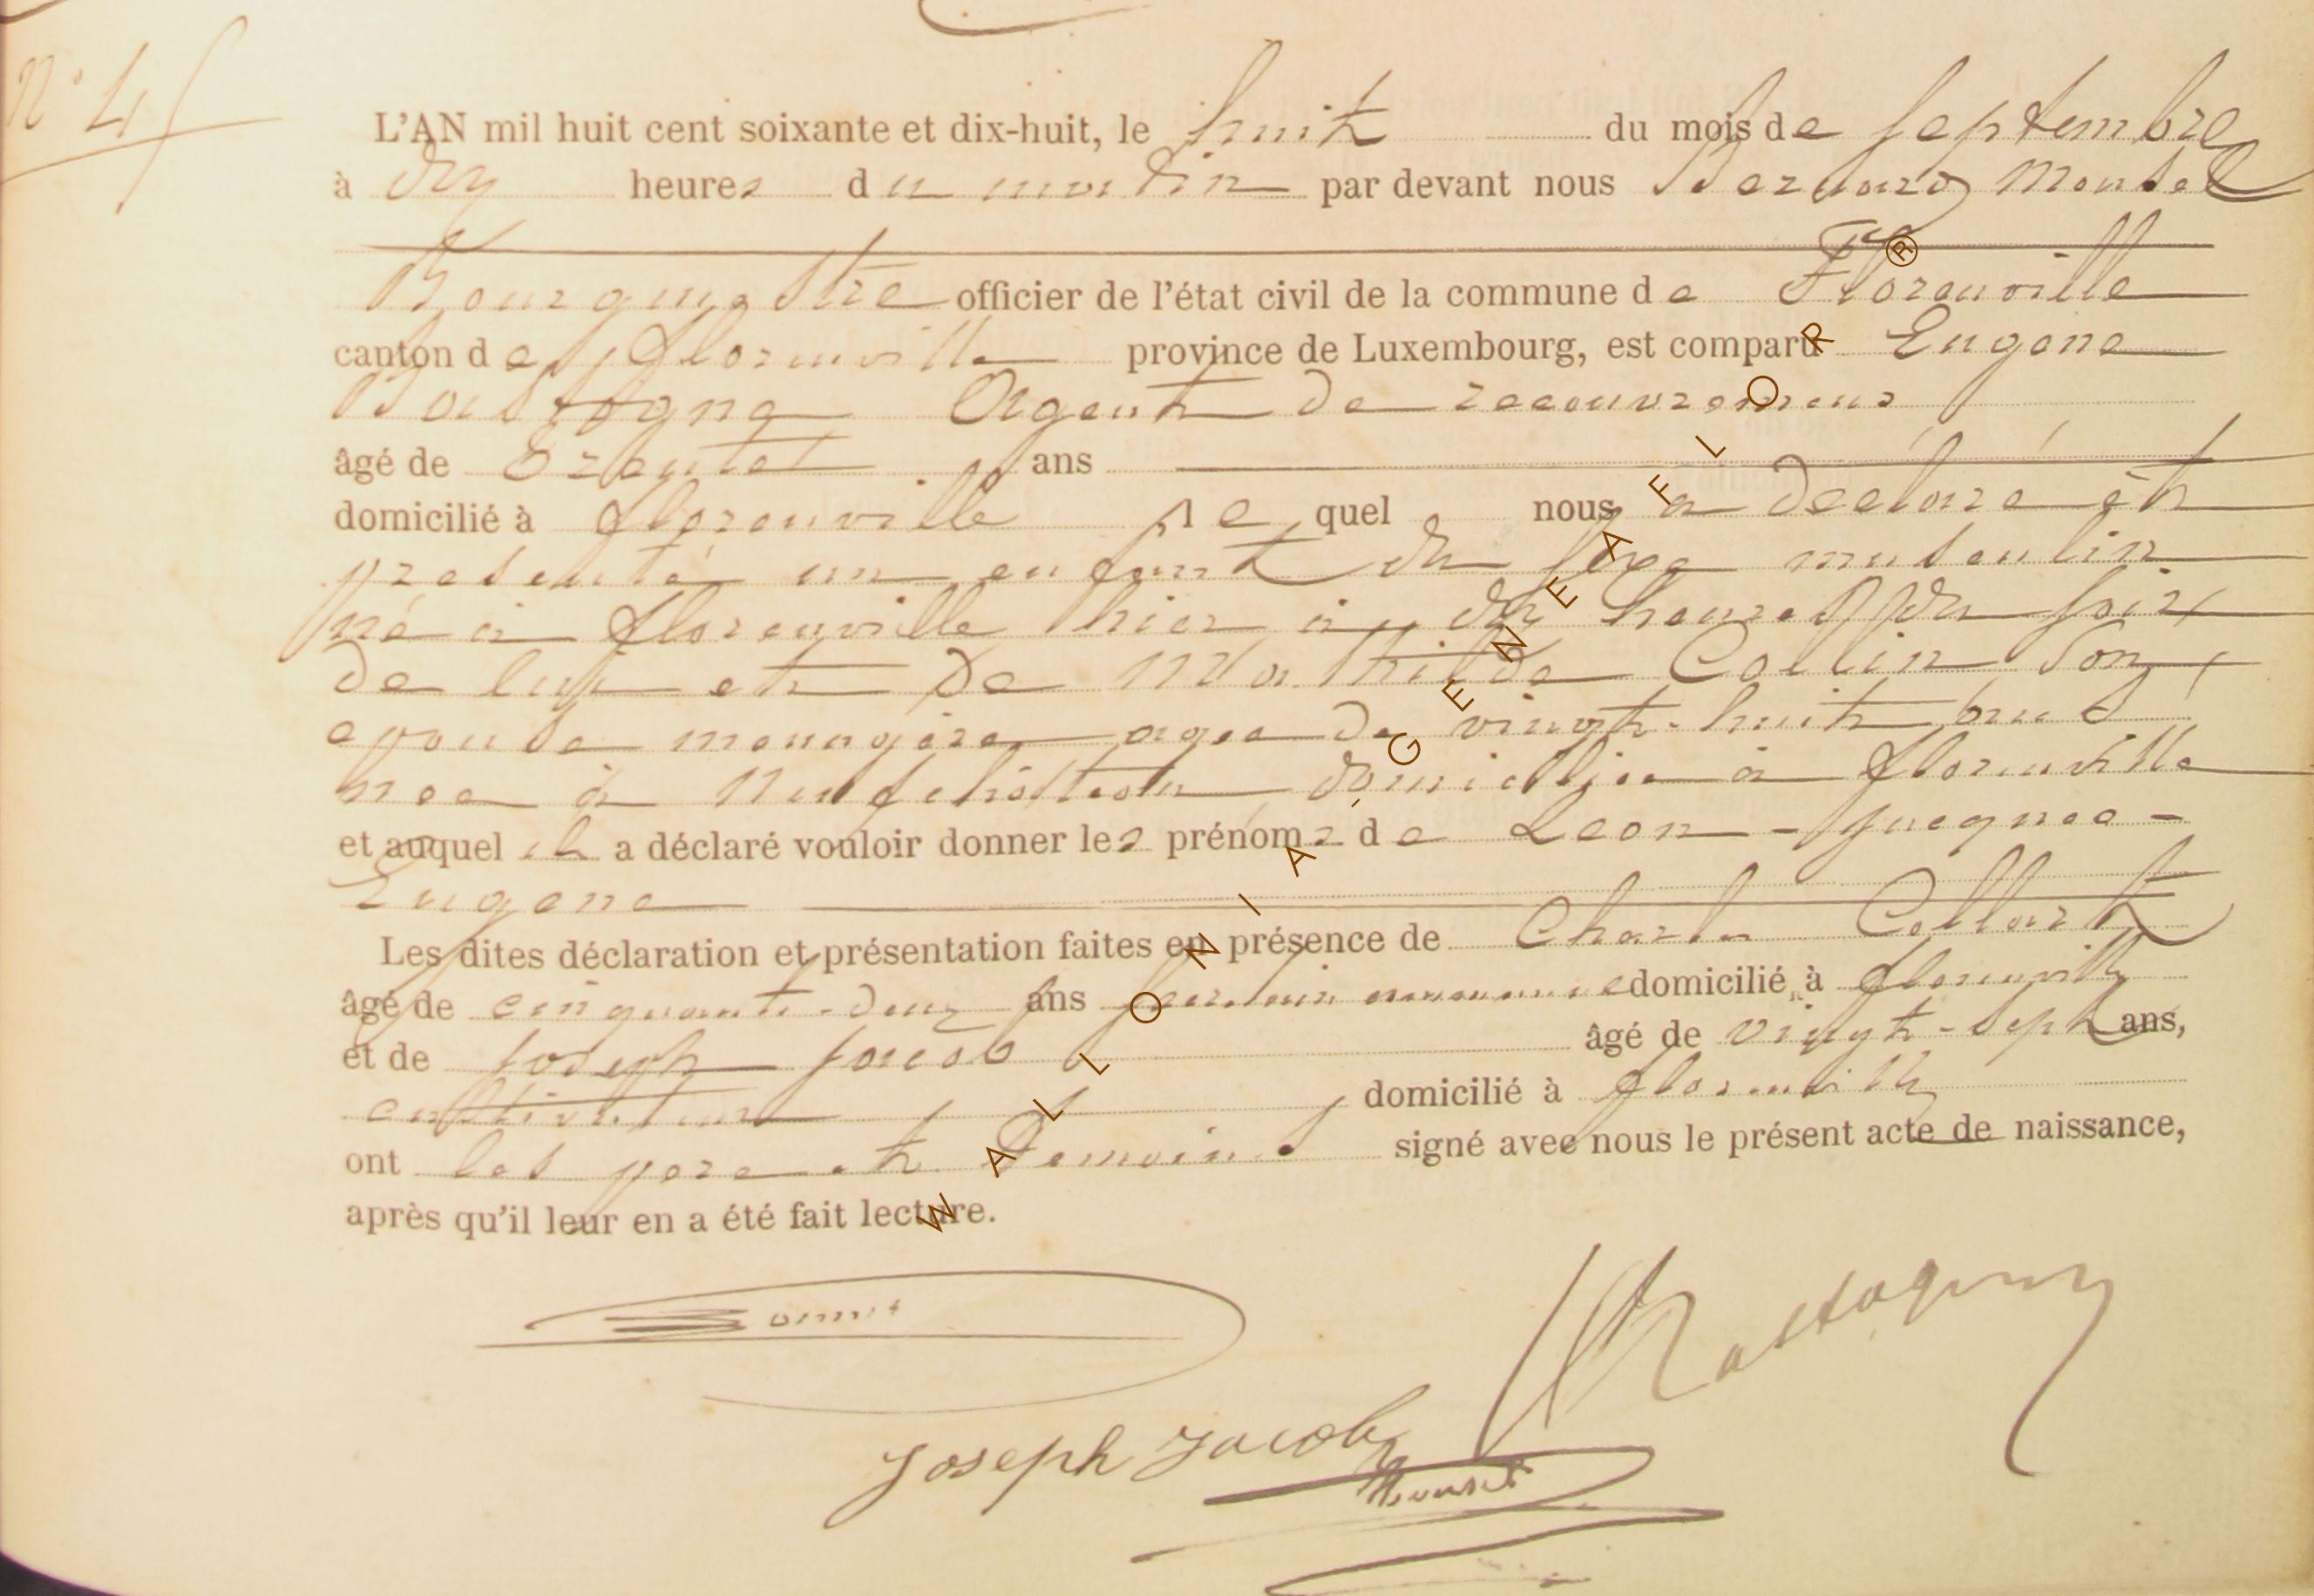 N° 45
L'AN mil huit cent soixante et dix-huit, le huit du mois de septembre
à dix heures du matin par devant nous Bernard Monsel
Bourgmestre officier de l'état civil de la commune de Florenville
canton de Florenville province de Luxembourg, est comparu Eugene
Bastogne Agent de recouvremens
âgé de trente ans
domicilié à Florenville lequel nous a déclaré et
presenté un enfant du sexe masculin
né à Florenville hier à dix heures du soir
de lui et de Mathilde Collin son
epouse menagère agee de vingt-huit ans
nee à Neufchateau domiciliee à Florenville
et auquel il a déclaré vouloir donner les prénoms de Leon -
Eugene
Les dites déclaration et présentation faites en présence de Charles Collart
âgé de cinquante-deux ans domicilié à Florenville
et de Joseph Jacob âgé de vingt-sept ans,
cultivateur domicilié à Florenville
ont les pere et temoins signé avec nous le présent acte de naissance,
après qu'il leur en a été fait lecture.
Bastogne
Joseph Jacob
Monsel
WALLONIA GENEAFLOR ®